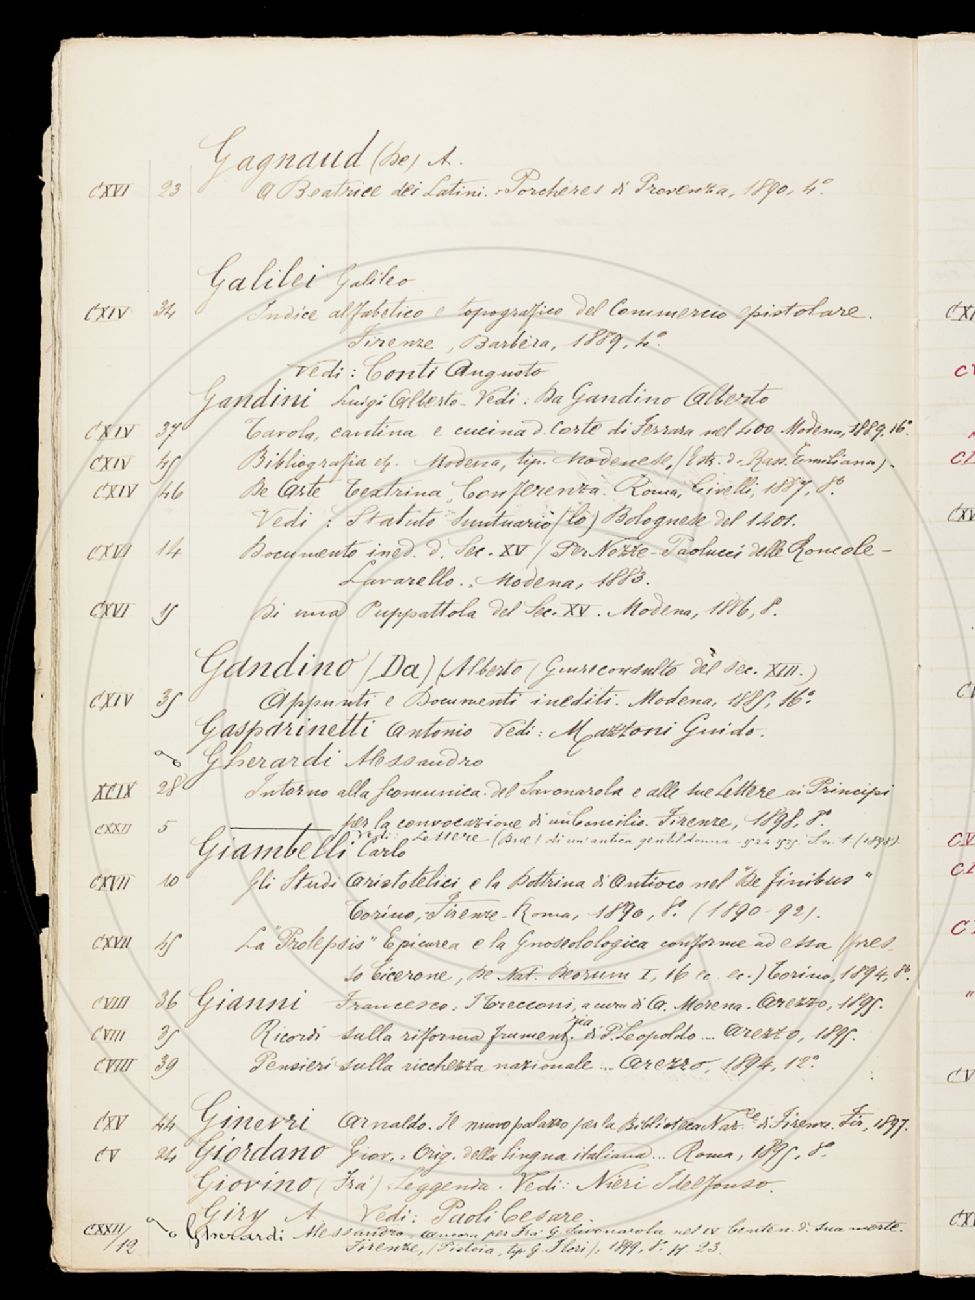 Gagnaud (De) A.
CXVI 23 A Beatrice dei Latini. Porchères di Provenza, 1890, 4º
Galilei Galileo
CXIV 34 Indice alfabetico e topografico del Commercio epistolare.
Firenze, Barbèra, 1889, 4º.
Vedi: Conti Augusto
Gandini Luigi Alberto - Vedi: Da Gandino Alberto
CXIV 37 Tavola, cantina e cucina d. Corte di Ferrara nel 400. Modena, 1889, 16º
CXIV 45 Bibliografia Modena, tip. Modenese, (Estr. d. Rass. Emiliana).
CXIV 46 De Arte Textrina, Conferenza. Roma, Civelli, 1887, 8º
Vedi: Statuto Suntuario (lo) Bolognese del 1401.
CXVI 14 Documento ined. d. Sec. XV (Per Nozze - Paolucci delle Roncole -
Lavarello. Modena, 1883.
CXVI 15 Di una Puppattola del Sec. XV. Modena, 1886, 8.
Gandino (Da) (Alberto (Giureconsulto del sec. XIII.)
CXIV 35 Appunti e Documenti inediti. Modena, 1885, 16º
Gasparinetti Antonio Vedi: Mazzoni Guido.
Gherardi Alessandro
XCIX 28 Intorno alla scomunica del Savonarola e alle sue Lettere ai Principi
per la convocazione di un Concilio. Firenze, 1898, 8º.
CXXII 5 Vedi: Lettere (Due) di un'antica gentildonna
Giambelli Carlo
CXVII 10 Gli Studi Aristotelici e la Dottrina di Antioco nel "De finibus"
Torino, Firenze - Roma, 1890, 8º. (1890-92).
CXVII 45 La "Prolepsis" Epicurea e la Gnoseologica conforme ad essa (pres-
so Cicerone, De Nat. Deorum I, 16 ec. ec.) Torino, 1894, 8º
CVIII 36 Gianni Francesco. I Trecconi, a cura di A. Morena. Arezzo, 1895.
CVIII 35 Ricordi sulla riforma frumentria di P. Leopoldo ... Arezzo, 1895.
CVIII 39 Pensieri sulla ricchezza nazionale ... Arezzo, 1894, 12º
CXV 44 Ginevri Arnaldo. Il nuovo palazzo per la Biblioteca Naz.le di Firenze. Fir., 1897.
CV 24 Giordano Giov. Orig. della lingua italiana ... Roma, 1895, 8º
Giovino (Fra') Leggenda. Vedi: Nieri Idelfonso.
Giry A. Vedi: Paoli Cesare.
CXXII/12 Gherardi Alessandro. Ancora per Fra G. Savonarola nel IV Centen. di sua morte.
Firenze, (Pistoia, tip. G. Flori), 1899, 8º pp. 23.